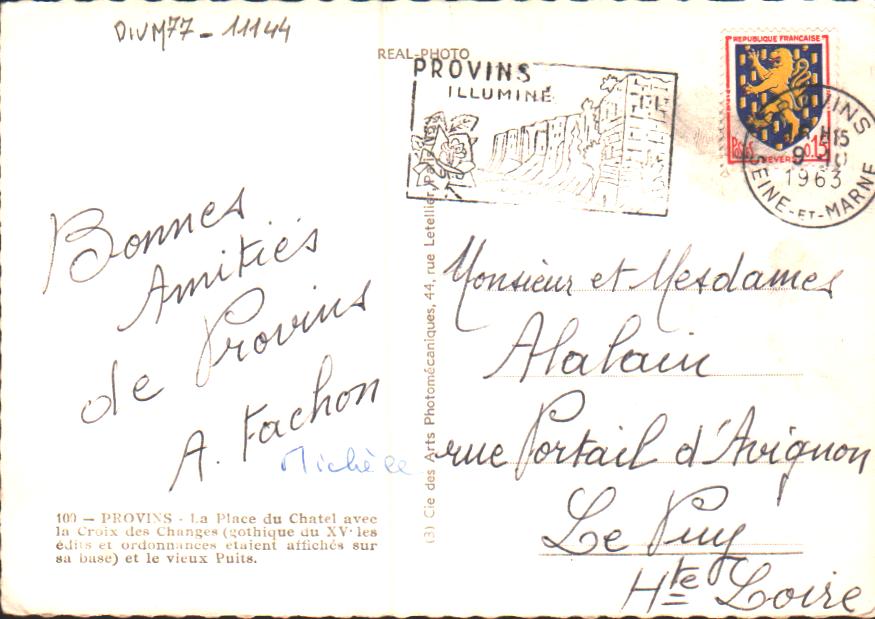 DIVM77-11144
REAL-PHOTO
PROVINS
ILLUMINÉ
REPUBLIQUE FRANÇAISE
Postes
0,15
NEVERS
PROVINS
15
9-10
1963
SEINE-ET-MARNE
Bonnes
Amitiés
de Provins
A. Fachon
Michèle
100 — PROVINS - La Place du Chatel avec
la Croix des Changes (gothique du XV· les
édits et ordonnances étaient affichés sur
sa base) et le vieux Puits.
(3) Cie des Arts Photomécaniques, 44, rue Letellier, Paris
Monsieur et Mesdames
Alalain
rue Portail d'Avignon
Le Puy
Hte Loire